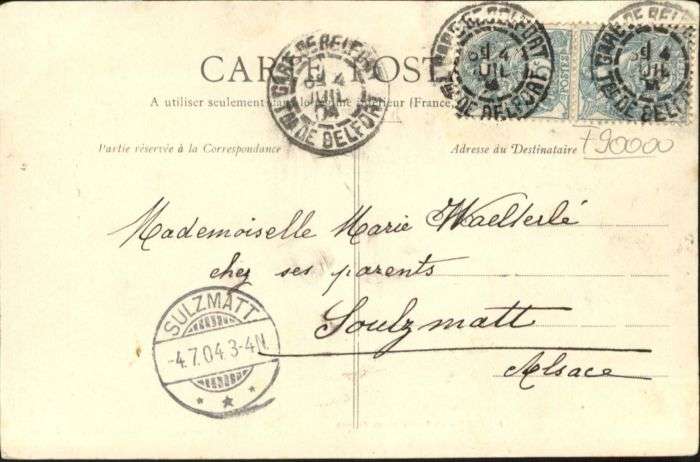 GARE DE BELFORT
4
JUIL
04
TRE DE BELFORT
GARE DE BELFORT
4
JUIL
04
DE BELFORT
GARE DE BELFORT
4
JUIL
DE BELFORT
POSTES
CARTE POST
A utiliser seulement dans le régime intérieur (France,
Partie réservée à la Correspondance
Adresse du Destinataire
+90000
Mademoiselle Marie Waelterlé
chez ses parents
Soulzmatt
Alsace
SULZMATT
-4.7.04.3-4N.